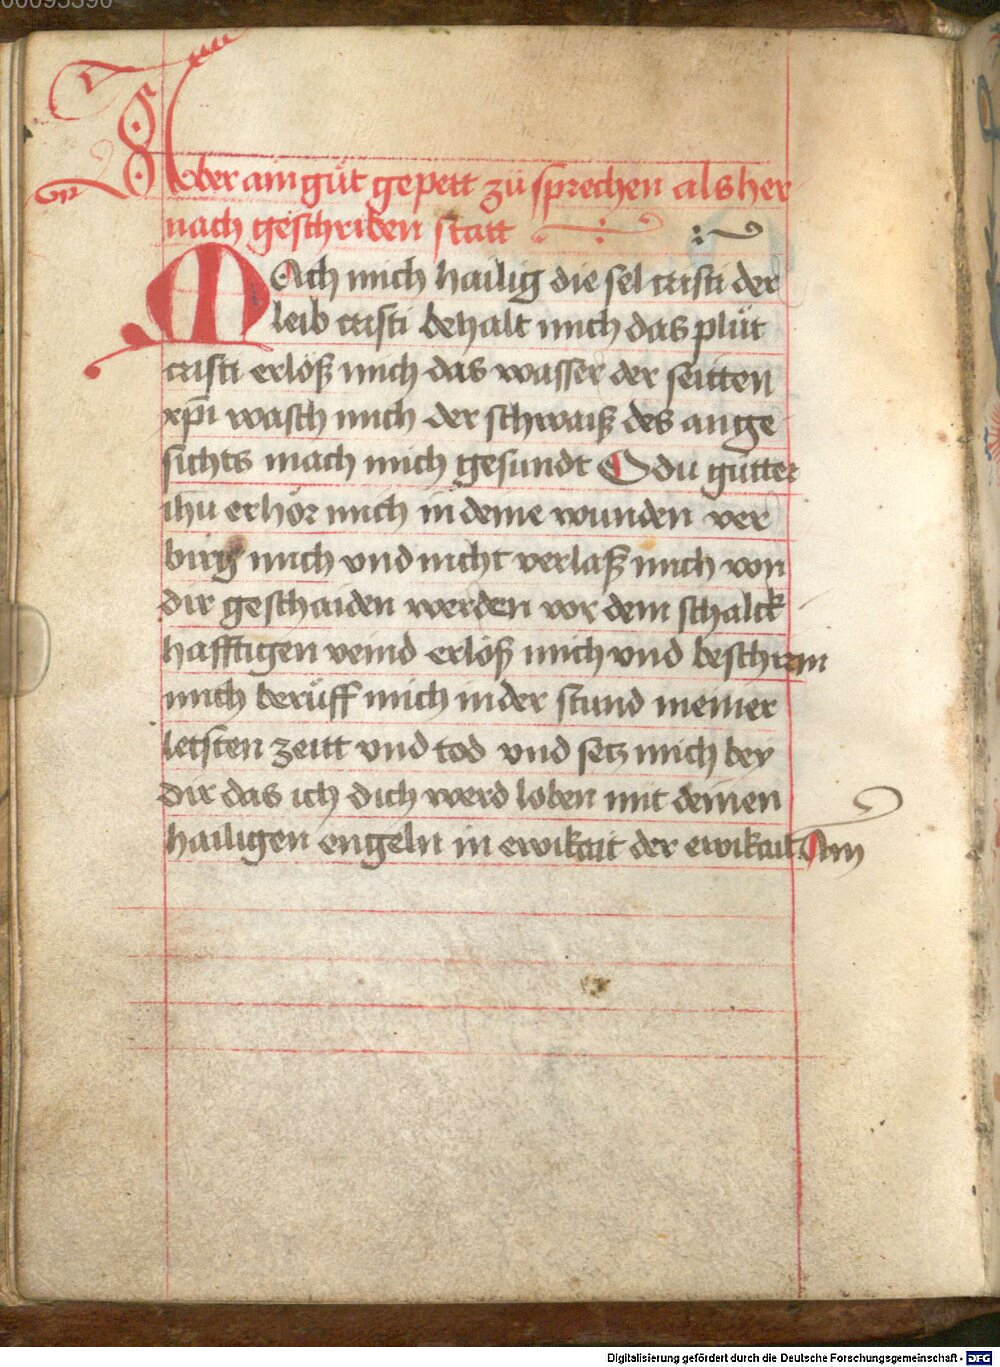 00095390
Aber ain gůt gepett zů sprechen als her
nach geschriben statt
MAch mich hailig die sel cristi der
leib cristi behalt mich das plůt
cristi erlöß mich das wasser der seitten
xp̄i wasch mich der schwaiß des ange
sichts mach mich gesundt O du gůtter
ihu erhör mich in deine wunden ver
birg mich vnd nicht verlaß mich von
dir geschaiden werden vor dem schalck
hafftigen veind erlöß mich vnd beschirm
mich berůff mich in der stund meiner
letsten zeitt vnd tod vnd setz mich bey
dir das ich dich werd loben mit deinen
hailigen engeln in ewikait der ewikait Am
Digitalisierung gefördert durch die Deutsche Forschungsgemeinschaft - DFG